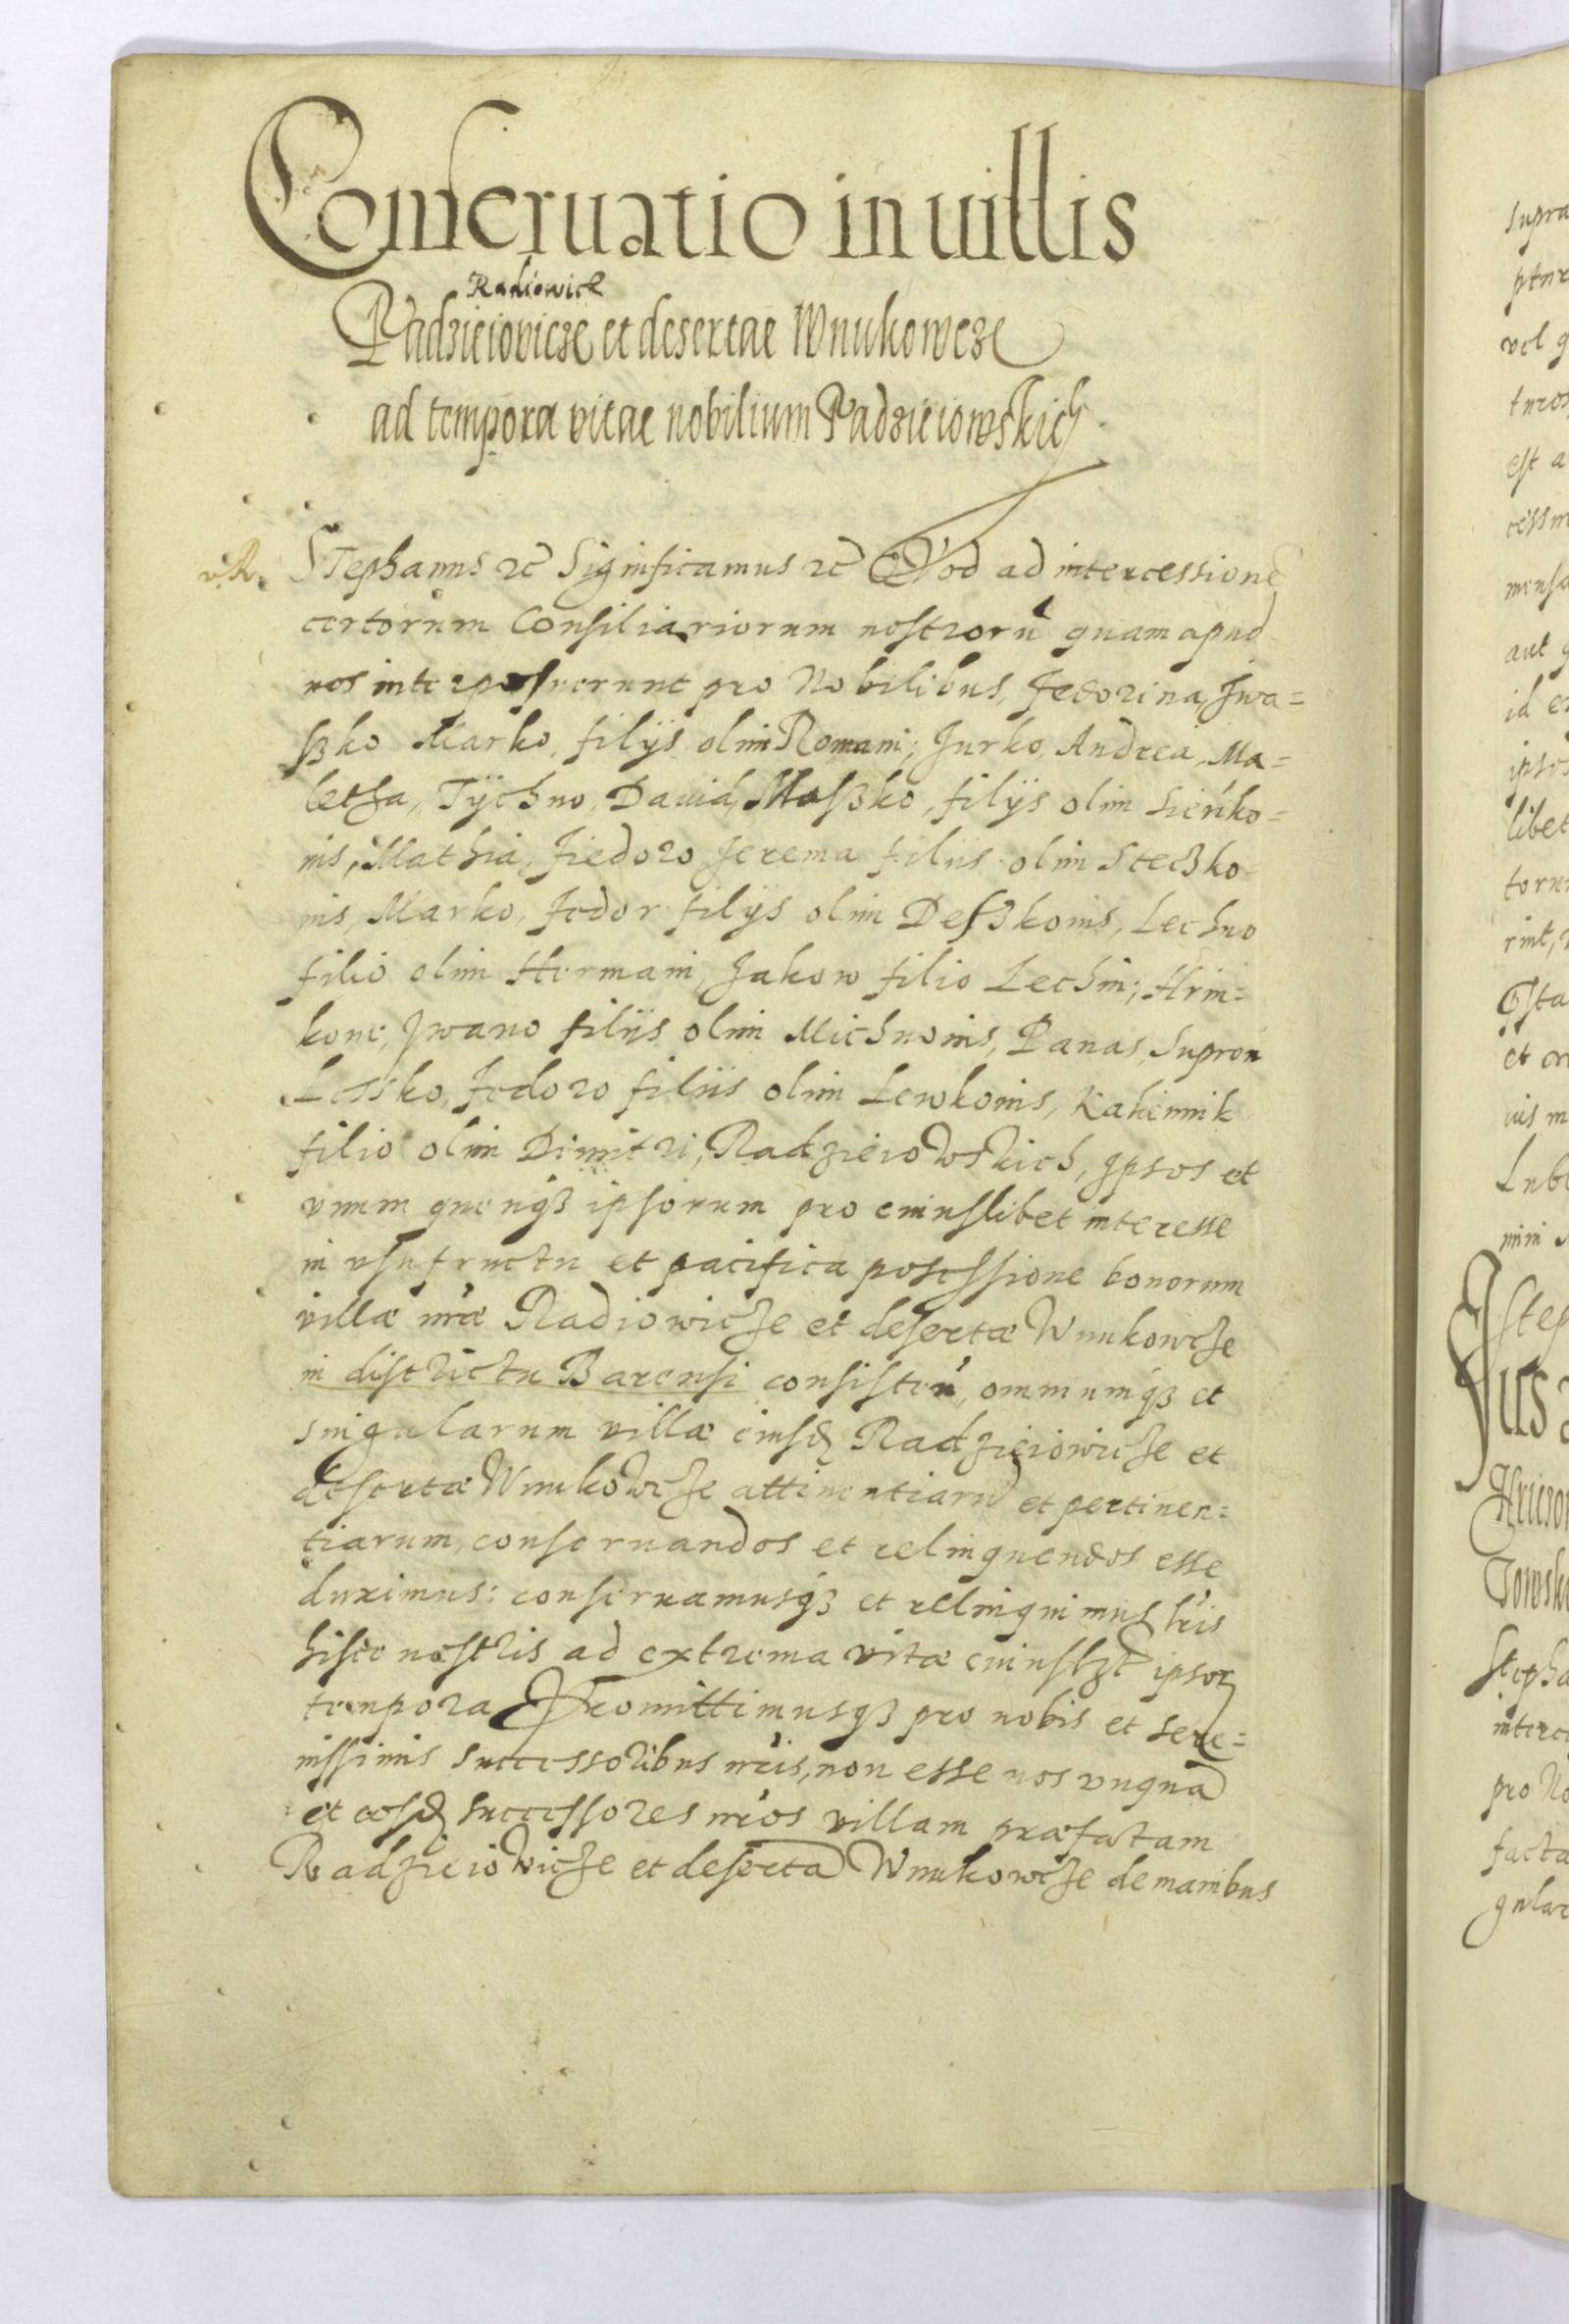 Conseruatio in uillis
Radiowicz
Radzieiowicze et desertae Wnukowcze
ad tempora vitae nobilium Radzieiowskich
Stephanus &c Significamus &c Qvod ad intercessionē
certorum Consiliariorum nostrorū quam apud
nos interposuerunt pro Nobilibus, Fedorina, Iwa=
szko Marko, filijs olim Romani; Jurko, Andrea, Ma=
letza, Tychno, Dauid, Moszko, filijs olim Sieńko=
nis, Mathia, Fiedoro Jerema filiis olim Steczko=
nis, Marko, Fedor filijs olim Deszkonis, Lechno
filio olim Hermani, Jakow filio Lechni; Hrin=
kone, Iwano filiis olim Michnonis, Panas, Supron
Lessko, Fedoro filiis olim Lewkonis, Kahinnik
filio olim Dimitri, Radzieiowskich, Ipsos et
vnum quenqꝫ ipsorum pro cuiuslibet interesse
in vsufructu et pacifica possessione bonorum
villæ nr̄æ Radiowicze et desertæ Wnukowcze
in districtu Barensi consisteň, omniumqꝫ et
singularum villæ eiusdꝫ Radzieiowicze et
desertæ Wnukowcze attinentiarū et pertinen=
tiarum, conseruandos et relinquendos esse
duximus: conseruamusqꝫ et relinquimus lr̄is
hisce nostris ad extrema vitæ cuiuslzt ipsoꝝ
tempora Promittimusqꝫ pro nobis et sere=
nissimis successoribus nr̄is, non esse nos vnquā
et eosdꝫ successores nr̄os villam præfatam
Radzieiowicze et desertā Wnukowcze de manibus